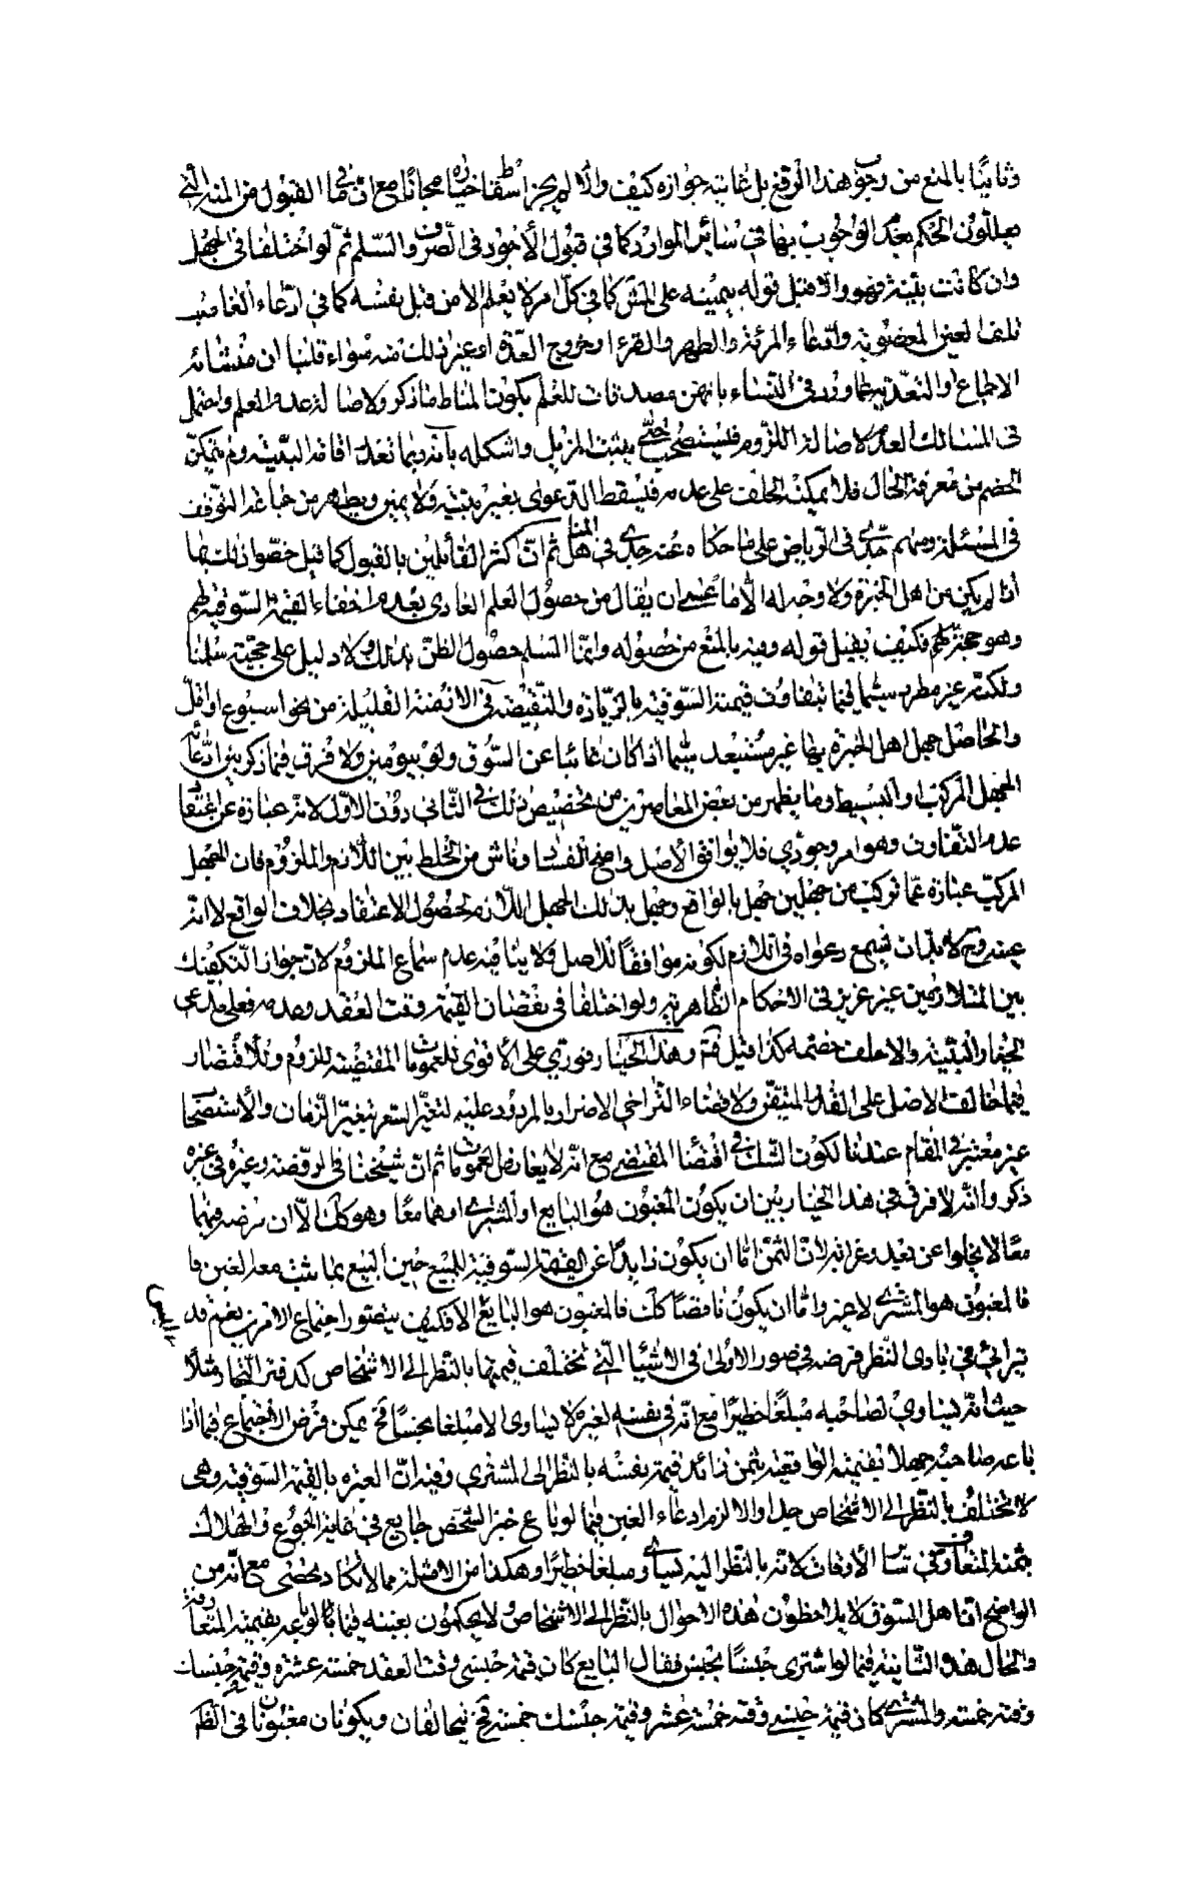 وثانيًا بالمنع من وجوب هذا الرفع بل غايته جوازه كيف والّا لم يجز اسقاط خياره مجانًا مع انّ في القبول من المنة الّتي
يعلّلون الحكم بعدم الوجوب بها في سائر الموارد كما في قبول الأجود في الصّرف والسّلم ثمّ لو اختلفا في الجهل
وان كانت بيّنة فهو والّا قبل قوله بيمينه على المش كما في كلّ امر لا يعلم الّا من قبل نفسه كما في ادّعاء الغاصب
تلف العين المغصوبة وادّعاء المرئة والطهر والقرء او خروج العدّة او غير ذلك منه سواء قلنا ان منشائه
الاجماع او التعدّية عمّا ورد في النّساء بانهن مصدقات للعلم بكون المناط ما ذكر ولاصالة عدم العلم واحتمل
في المسالك العدم لاصالة اللزوم فيستصحب حتّى يثبت المزيل واشكله بانّه ربما تعذّر اقامة البيّنة ولم يتمكّن
الخصم من معرفة الحال فلا يمكنه الحلف على عدمه فيسقط الدّعوى بغير بيّنة ولا يمين ويظهر من جماعة التوقّف
في المسئلة ومنهم جدّي في الرّياض على ما حكاه عنه جدّي في المناهل ثم انّ كثر القائلين بالقبول كما قيل خصّوا ذلك بما
اذا لم يكن من اهل الخبرة ولا وجه له الّا ما عسى ان يقال من حصول العلم العادي بعدم اخفاء القيمة السّوقية لهم
وهو حجة لهم فكيف يقبل قوله وفيه بالمنع من حصوله وانّما المسلم حصول الظنّ بذلك ولا دليل على حجّيته سلمنا
ولكنّه غير مطرد سيّما فيما تتفاوت قيمته السّوقية بالزيادة والنّقيصة في الازمنة القليلة من نحو اسبوع او اقلّ
والحاصل جهل اهل الخبرة بها غير مستبعد سيّما اذا كان غائبا عن السّوق ولو بيومين ولا فرق فيما ذكر بين ادّعاء
الجهل المركب او البسيط وما يظهر من بعض المعاصرين من تخصيص ذلك في الثّاني دون الاوّل لانّه عبارة عن اعتقاد
عدم التّفاوت وهو امر وجودي فلا يوافق الأصل واضح الفساد وناش من الخلط بين اللّازم والملزوم فان الجهل
المركّب عبارة عمّا تركب من جهلين جهل بالواقع وجهل بذلك الجهل اللّازم لحصول الاعتقاد بخلاف الواقع لا انّه
عينه وح لا باس بان يسمع دعواه في اللازم لكونه موافقًا للاصل ولا ينافيه عدم سماع الملزوم لان جواز التّفكيك
بين المتلازمين غير عزيز في الاحكام الظّاهرية ولو اختلفا في نقصان القيمة وقت العقد وعدمه فعلى مدعى
الخيار البيّنة والا حلف خصمه كذا قيل فتم وهذا الخيار فوري على الأقوى للعمومات المقتضية للزوم وللاقتصار
فيما خالف الاصل على القدر المتيقّن ولافضاء التّراخي الاضرار بالمردود عليه لتغيّر السّعر بتغيّر الزّمان والأستصحاب
غير معتبر في المقام عندنا لكون الشّك في اقتضاء المقتضي مع انّه لا يعارض العمومات ثم انّ شيخنا في الروضة وغيره في غيره
ذكروا انّه لا فرق في هذا الخيار بين ان يكون المغبون هو البايع او المشتري او هما معًا وهو كك الّا ان فرضه فيهما
معًا لا يخلوا عن بعد وغرابة لانّ الثمن امّا ان يكون زايدًا عن القيمة السّوقيّة للمبيع حين البيع بما يثبت معه الغبن فا
فالمغبون هو المشتري لا غير وامّا ان يكون ناقصًا كك فالمغبون هو البايع لا فكيف يتصّور اجتماع الامرين نعم قد
يترائى في بادى النّظر فرضه في صور الاولى في الاشياء الّتي تختلف قيمتها بالنّظر الى الاشخاص كدفتر التّجار مثلًا
حيث انّه يساوي لصاحبه مبلغًا خطيرًا مع انّه في نفسه لغيره لا يساوى الا مبلغا بخسًا فح يمكن فرض الاجتماع فيما اذا
باعه صاحبه جهلا بقيمته الواقعية بثمن زائد قيمته بنفسه بالنّظر الى المشترى وفيه انّ العبرة بالقيمة السّوقية وهى
لا تختلف بالنّظر الى الاشخاص جدا والا لزم ادعاء الغبن فيما لو باع خبز الشّخص جايع في غاية الجوع والهلاك
بثمنه المتعارف في سائر الأوقات لانّه بالنّظر اليه يساوي مبلغا خطيرًا وهكذا من الامثلة مما لا يكاد يحصى مع انّه من
الواضح انّ اهل السّوق لا يلاحظون هذه الاحوال بالنّظر الى الاشخاص ولا يحكمون بغبنه فيما لو باعه بقيمته المتعارفة
والحال هذه الثّانية فيما لو اشترى جنسًا بجنس فقال البايع كان قيمة جنسي وقت العقد خمسة عشرة وقيمة جنسك
وقته خمسة والمشتري كان قيمة جنسي وقته خمسة عشر وقيمة جنسك خمسة فح يتحالفان ويكونان مغبونان في الظّ